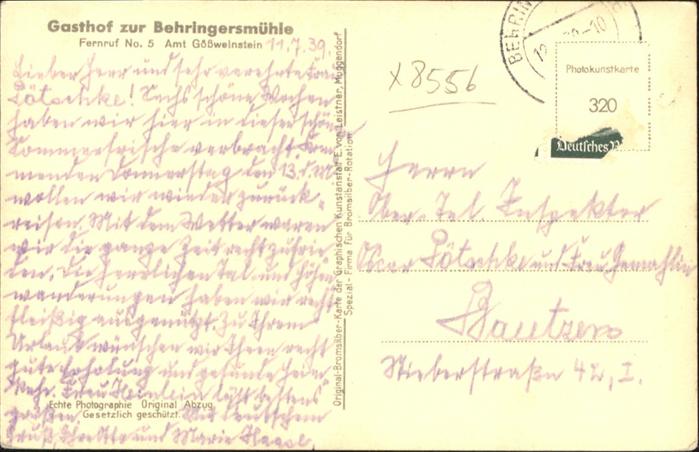 Gasthof zur Behringersmühle
Fernruf No. 5 Amt Gößweinstein 11.7.39.
Lieber Herr und sehr verehrte Frau
Lötschke! Sechs schöne Wochen
haben wir hier in dieser schönen
Sommerfrische verbracht. Kom-
menden Donnerstag den 13. d. M.
wollen wir wieder zurück-
reisen. Mit dem Wetter waren
wir die ganze Zeit recht zufrie-
den, die herrlichen Tal und Höhen
wanderungen haben wir recht
fleißig ausgenützt. Zu Ihrem
Urlaub wünschen wir Ihnen recht
gute Erholung und gesunde Heim-
kehr. Frau Heinlein läßt bestens
grüßen. Mit deutschem
Gruß, Ihre Otto und Marie
Echte Photographie Original Abzug.
Gesetzlich geschützt.
Original-Bromsilber-Karte der Graphischen Kunstanstalt E. von Leistner, Muggendorf
Spezial-Firma für Bromsilber-Rotation
x 8556
BEHRIN
Photokunstkarte
320
Deutsches R
Herrn
Ober. Tel. Inspektor
Oscar Lötschke und Frau Gemahlin
Bautzen
Stieberstraße 42, I.